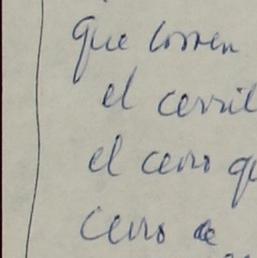 que corren
el cerril
el cerro qu
cerro de